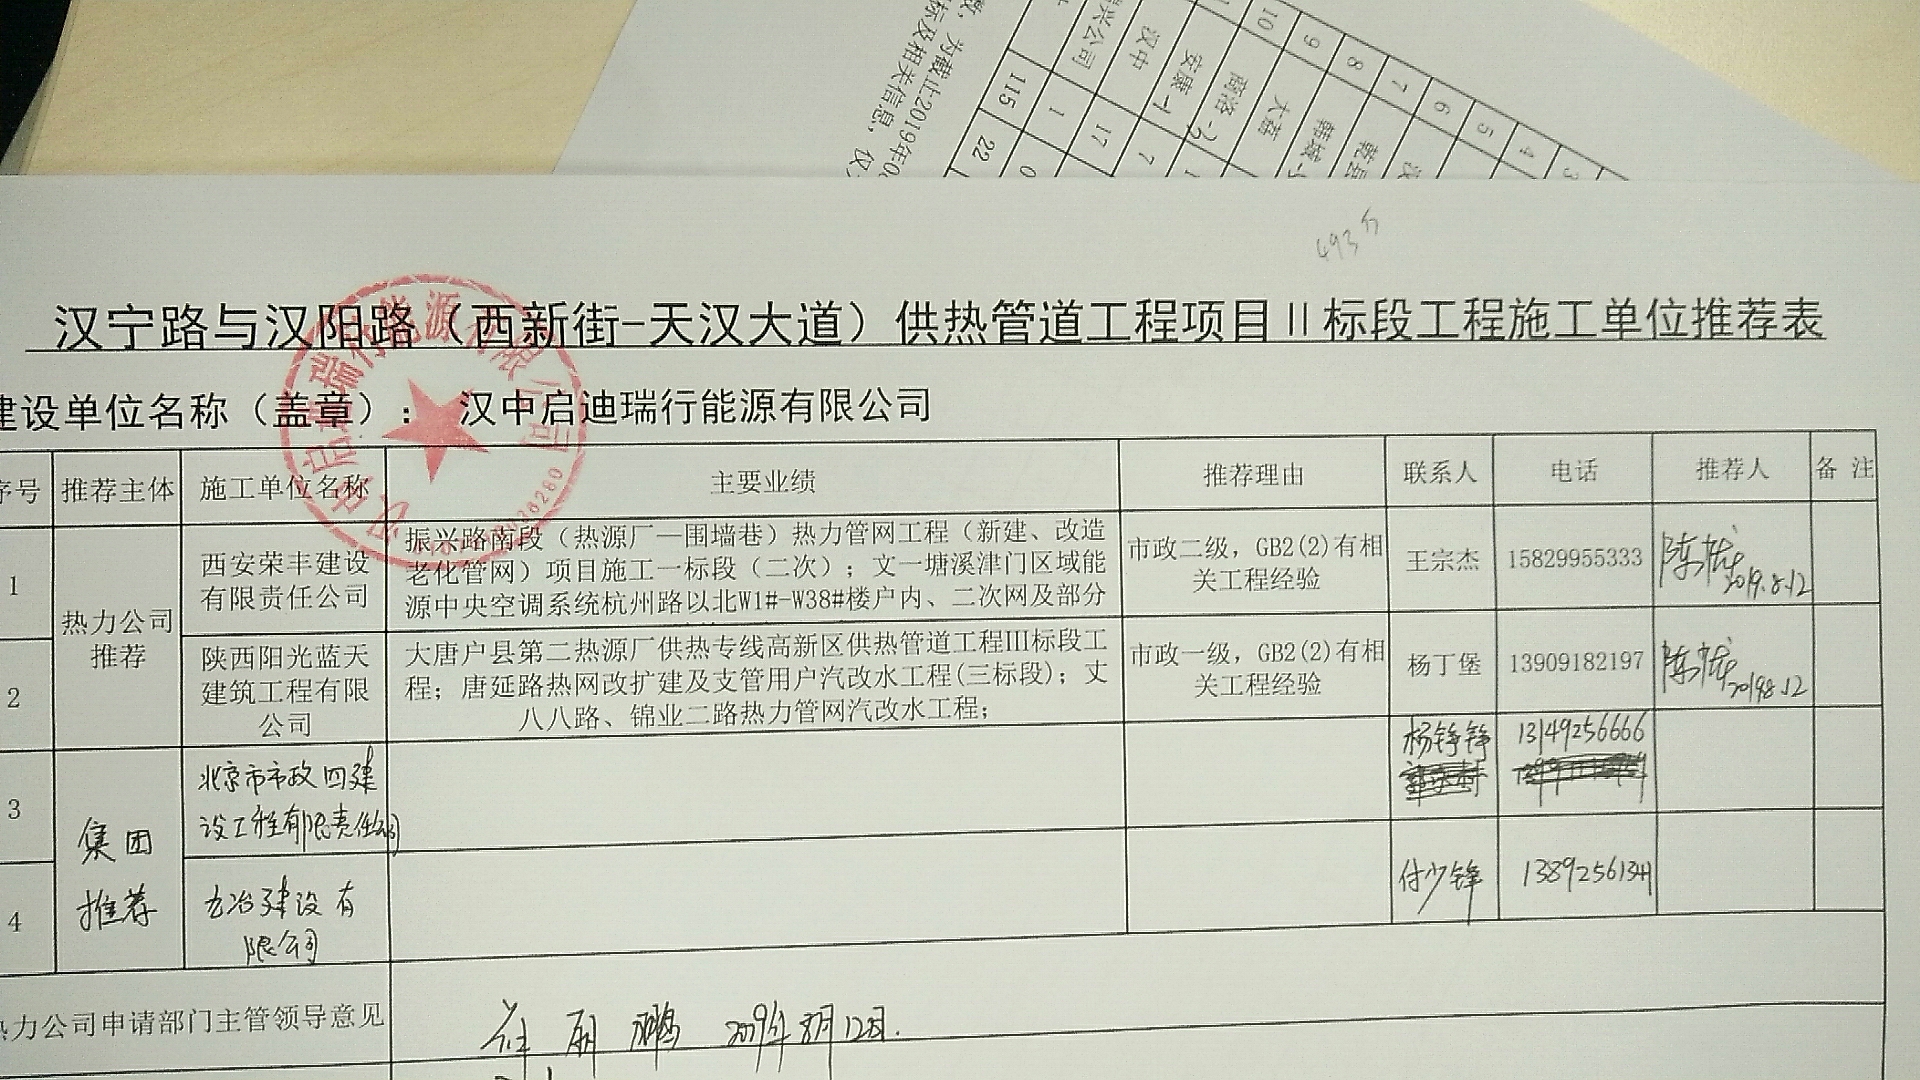 数，为截止2019年0
标及相关信息，仅
兴公司
汉中
安康-1
商洛-2
大荔
韩城-1
乾县
10
9
8
7
6
5
4
3
115
1
17
7
1
22
0
493分
汉宁路与汉阳路（西新街-天汉大道）供热管道工程项目Ⅱ标段工程施工单位推荐表
建设单位名称（盖章）： 汉中启迪瑞行能源有限公司
汉中启迪瑞行能源有限公司
序号 推荐主体 施工单位名称 主要业绩 推荐理由 联系人 电话 推荐人 备 注
1
热力公司
推荐
西安荣丰建设
有限责任公司
振兴路南段（热源厂—围墙巷）热力管网工程（新建、改造
老化管网）项目施工一标段（二次）；文一塘溪津门区域能
源中央空调系统杭州路以北W1#-W38#楼户内、二次网及部分
市政二级，GB2(2)有相
关工程经验
王宗杰
15829955333
2019.8.12
2
陕西阳光蓝天
建筑工程有限
公司
大唐户县第二热源厂供热专线高新区供热管道工程III标段工
程；唐延路热网改扩建及支管用户汽改水工程(三标段)；丈
八八路、锦业二路热力管网汽改水工程；
市政一级，GB2(2)有相
关工程经验
杨丁堡
13909182197
2019.8.12
3
集团
推荐
北京市市政四建
设工程有限责任公司
杨铮铮
13149256666
4
五冶建设有
限公司
付少锋
1389256134
热力公司申请部门主管领导意见
2019年8月12日.